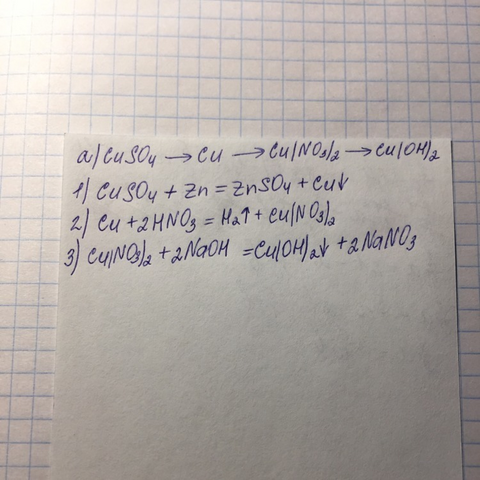 а) CuSO₄ → Cu → Cu(NO₃)₂ → Cu(OH)₂
1) CuSO₄ + Zn = ZnSO₄ + Cu↓
2) Cu + 2HNO₃ = H₂↑ + Cu(NO₃)₂
3) Cu(NO₃)₂ + 2NaOH = Cu(OH)₂↓ + 2NaNO₃